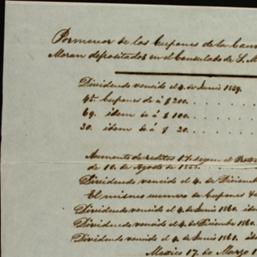 Pormenor de los Cupones de la Con
Moran depositados en el Consulado de S. M
Dividendo vencido el 4 de Junio 1859.
91. Cupones de á $200. . . . .
69. idem de á $100. . . . .
30. idem de á $20. . . . .
Aumento de reditos
de 10. de Agosto de
Dividendo vencido el 4. de Diciemb
El mismo numero de Cupones
Dividendo vencido el 4. de Junio 1860. id
Dividendo vencido el 4. de Diciembre 1860.
Dividendo vencido el 4. de Junio 1861. id
Mexico 17. de Marzo